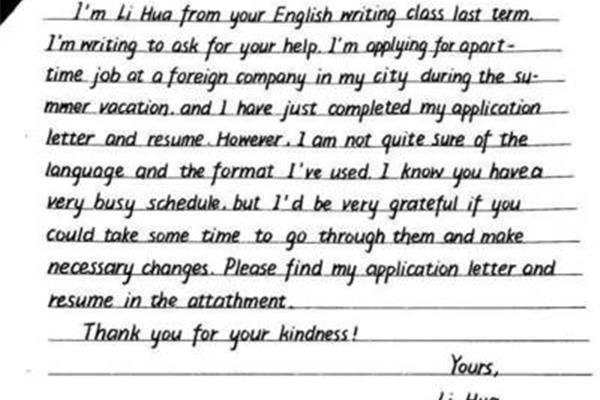 I'm Li Hua from your English writing class last term.
I'm writing to ask for your help. I'm applying for apart-
time job at a foreign company in my city during the su-
mmer vacation. and I have just completed my application
letter and resume. However. I am not quite sure of the
language and the format I've used. I know you have a
very busy schedule. but I'd be very grateful if you
could take some time to go through them and make
necessary changes. Please find my application letter and
resume in the attathment.
Thank you for your kindness!
Yours,
Li Hua